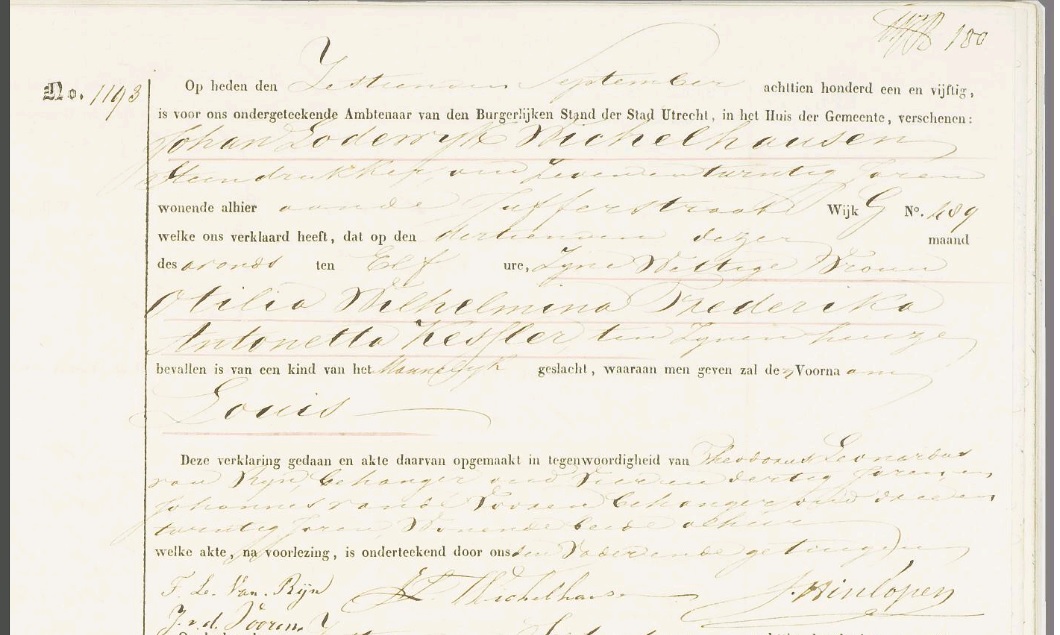 180
No. 1193
Op heden den Zestienden September achttien honderd een en vijftig,
is voor ons ondergeteekende Ambtenaar van den Burgerlijken Stand der Stad Utrecht, in het Huis der Gemeente, verschenen:
Johan Lodewyk Wichelhausen
Steendrukker oud Zevenentwintig Jaren
wonende alhier aan de Jufferstraat Wijk G No. 489
welke ons verklaard heeft, dat op den dertienden dezer maand
des avonds ten Elf ure, Zyne Wettige Vrouw
Otilia Wilhelmina Frederika
Antonetta Kessler ten Zynen huize
bevallen is van een kind van het Mannelyk geslacht, waaraan men geven zal den Voornaam
Louis
Deze verklaring gedaan en akte daarvan opgemaakt in tegenwoordigheid van Theodorus Leonardus
van Ryn, behanger oud Vierendertig Jaren, en
Johannes van de Vooren behanger oud drieen
twintig Jaren Wonende beide alhier
welke akte, na voorlezing, is onderteekend door ons, den Vader en de getuigen
T. Le. Van. Rÿn JL Wichelhausen J. Hinlopen
J. v. d. Vooren